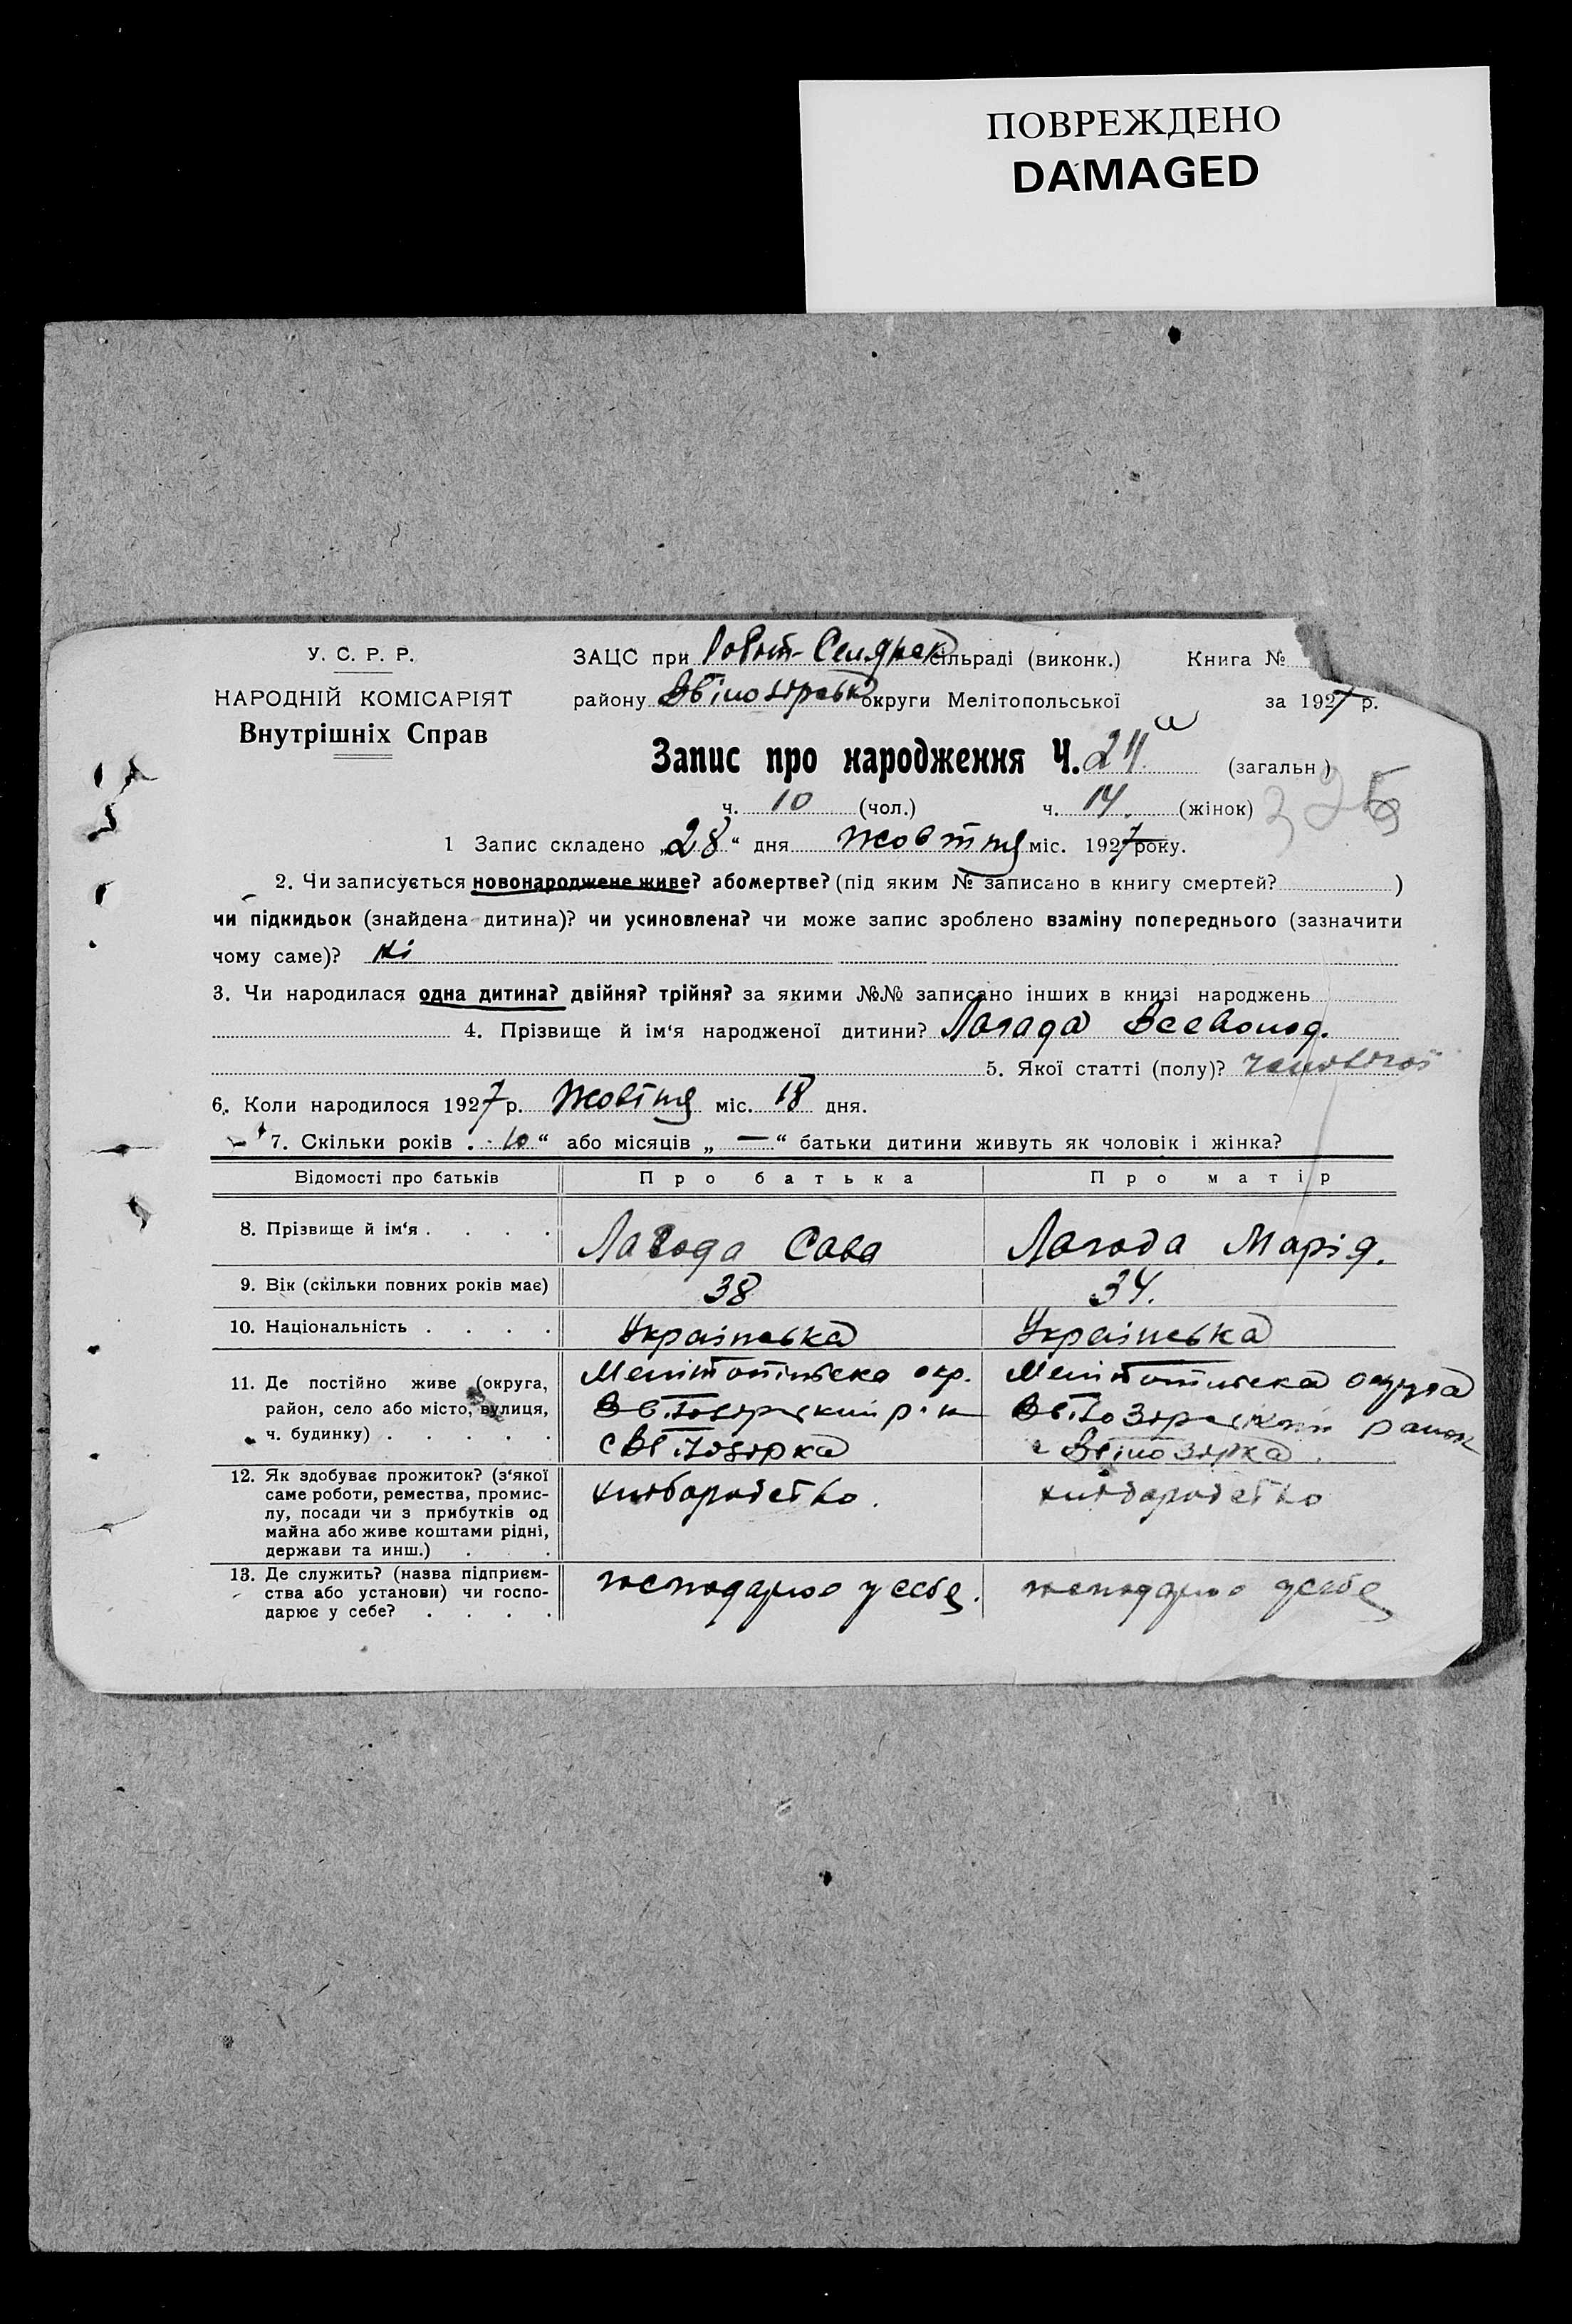 ПОВРЕЖДЕНО
DAMAGED
У. С. Р. Р.
НАРОДНІЙ КОМІСАРІЯТ
Внутрішніх Справ
ЗАЦС при Робіт-Селянск сільраді (виконк.) Книга №
району округи Мелітопольської за 1927 р.
Запис про народження Ч. 24 (загальн)
ч. 10 (чол.) ч. 14. (жінок)
325
1 Запис складено „28“ дня Жовтня міс. 1927 року.
2. Чи записується новонароджене живе? або мертве? (під яким № записано в книгу смертей? )
чи підкидьок (знайдена дитина)? чи усиновлена? чи може запис зроблено взаміну попереднього (зазначити
чому саме)? Ні
3. Чи народилася одна дитина? двійня? трійня? за якими №№ записано інших в книзі народжень
4. Прізвище й ім‘я народженої дитини? Лагода Всеволод.
5. Якої статті (полу)? чоловічої
6. Коли народилося 1927 р. Жовтня міс. 18 дня.
7. Скільки років „10“ або місяців „—“ батьки дитини живуть як чоловік і жінка?
Відомості про батьків Про батька Про матір
8. Прізвище й ім‘я . . . . Лагода Сава Лагода Марія.
9. Вік (скільки повних років має) 38 34.
10. Національність . . . . Українська Українська
11. Де постійно живе (округа,
район, село або місто, вулиця,
ч. будинку) . . . . .
Мелітопільска окр.
Мелітопільска округа
12. Як здобуває прожиток? (з‘якої
саме роботи, ремества, промис-
лу, посади чи з прибутків од
майна або живе коштами рідні,
держави та инш.) . .
хліборобство.
хліборобство
13. Де служить? (назва підприєм-
ства або установи) чи госпо-
дарює у себе? . . . .
господарює у себе.
господарює у себе